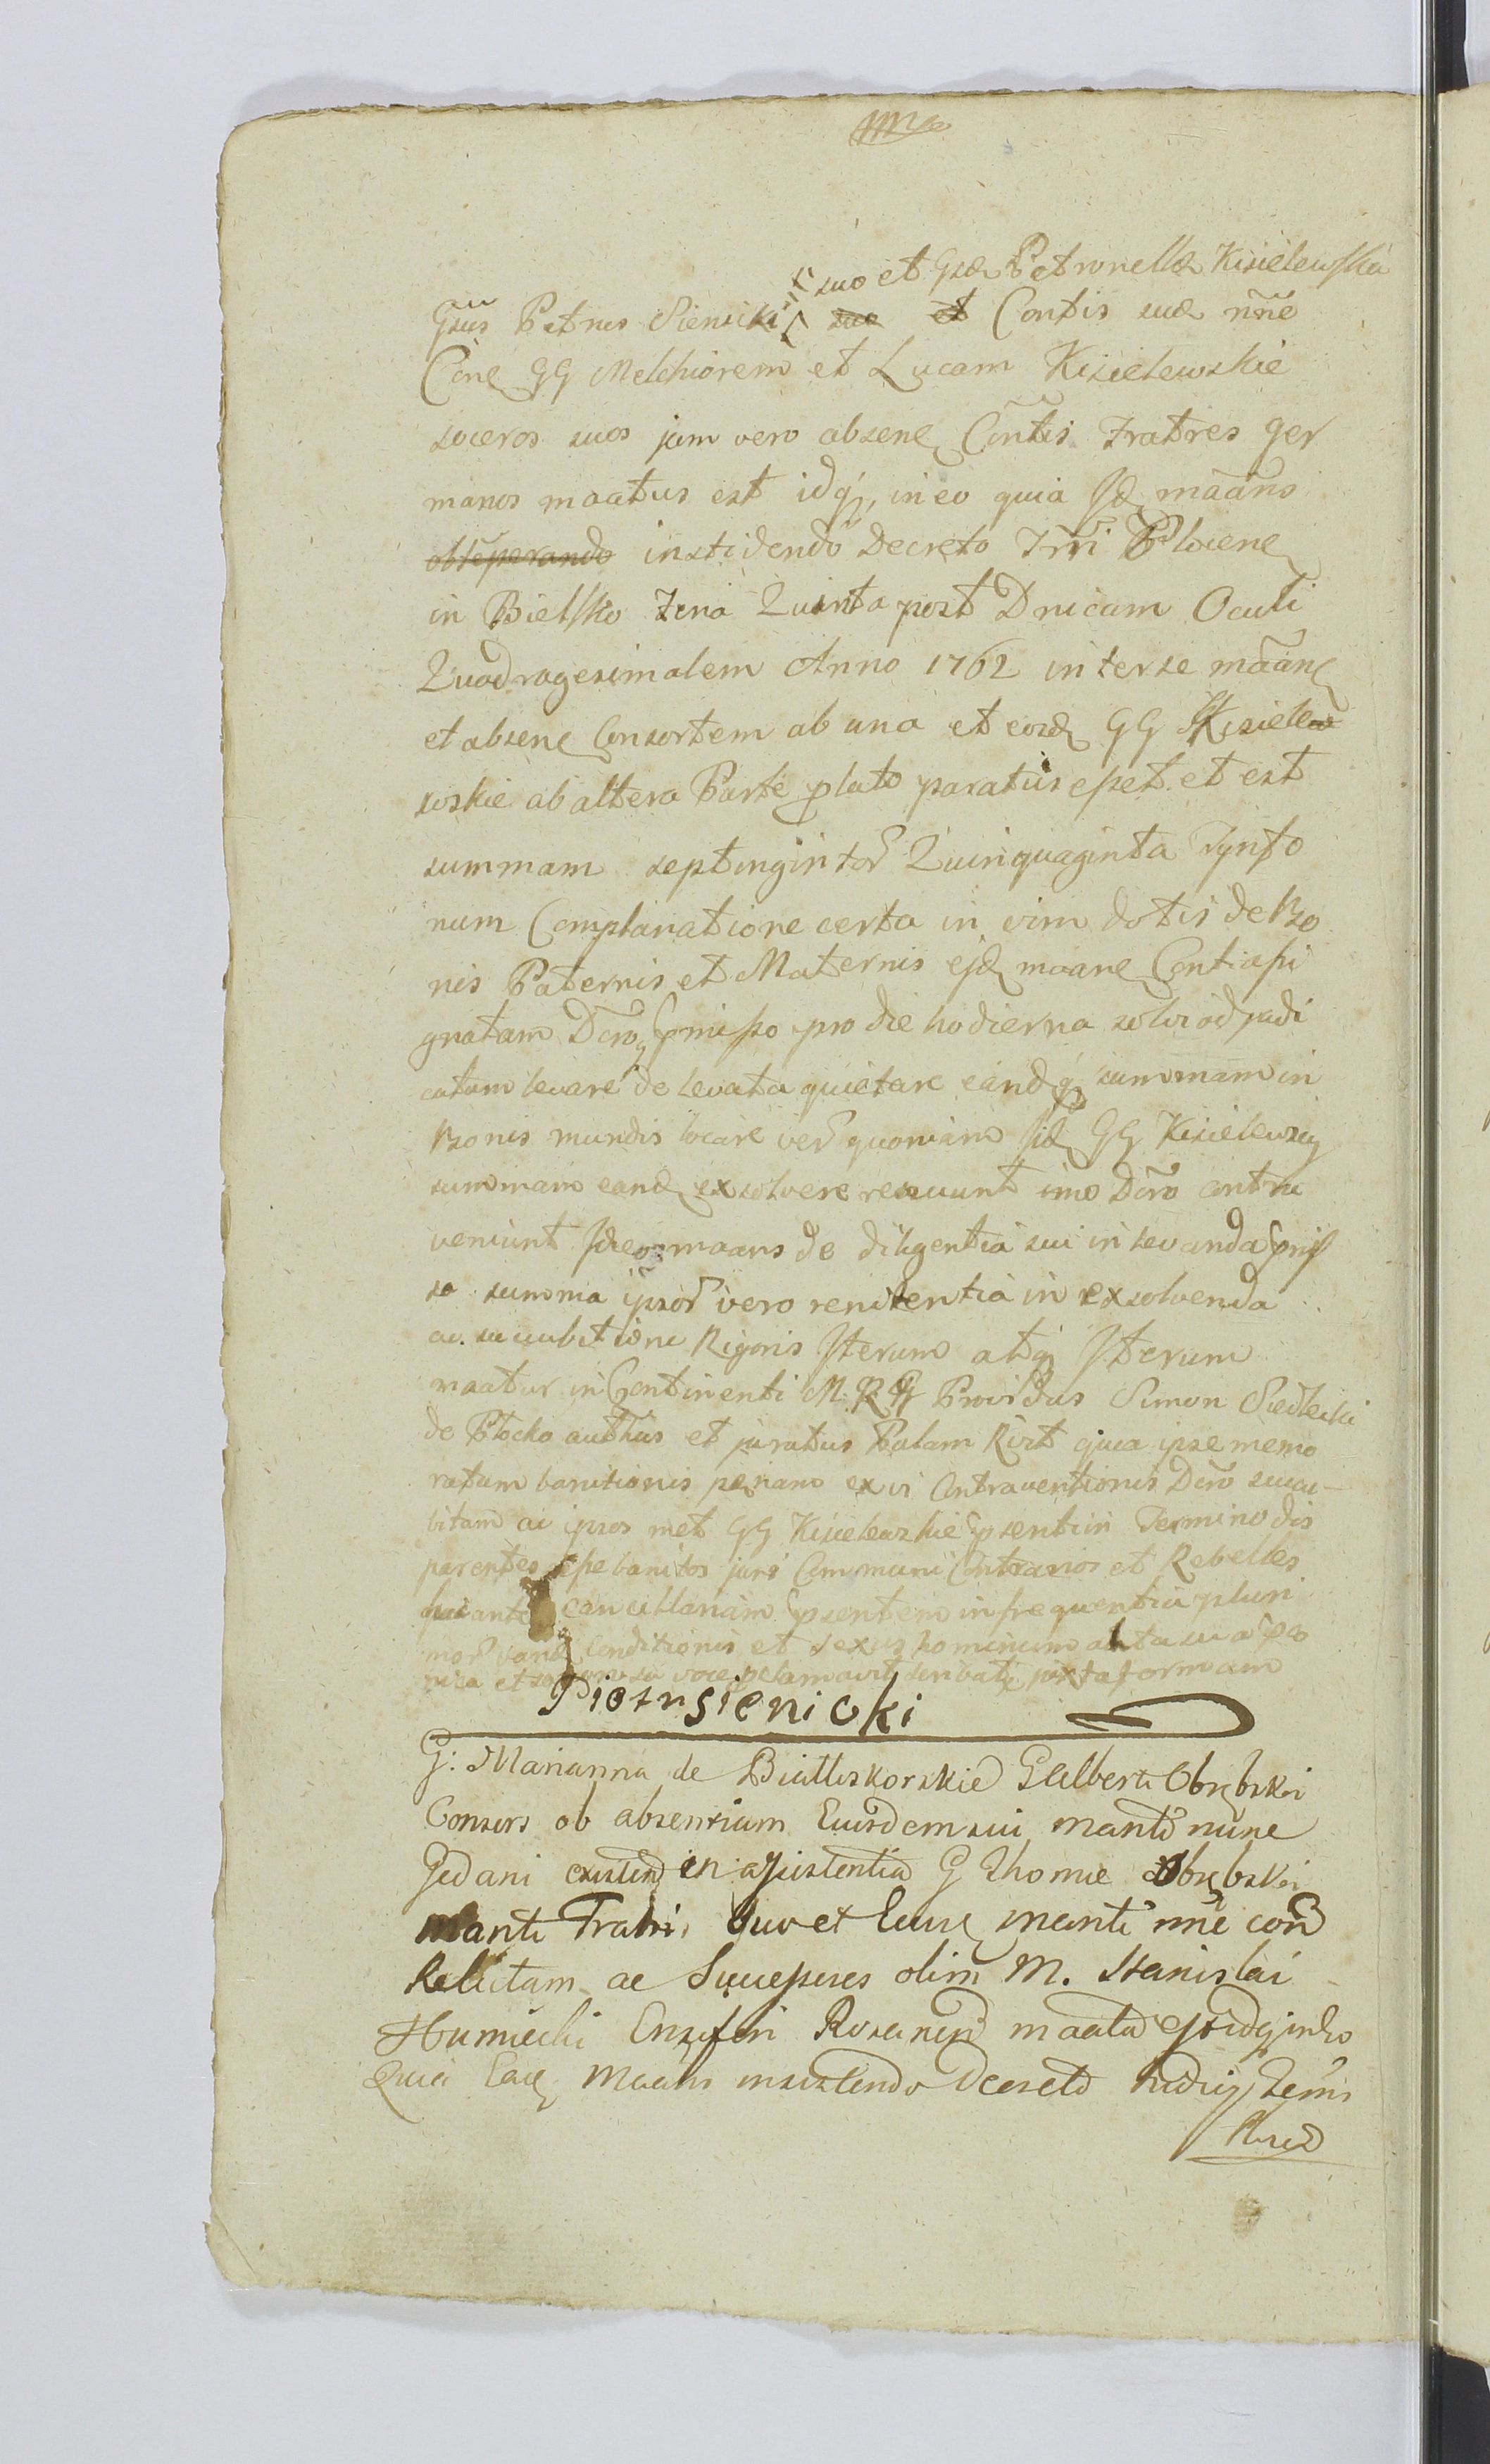 suo et Gsæ Petronellæ Kisielewska
Gsus Petrus Sienicki suo et Contis suæ nne
Cone GG Melchiorem et Lucam Kisielewskie
soceros suos jam vero absene Contis Fratres ger
manos maatus est idq, in eo quia Id maans
obteperando insti dendo Decreto Trri Plocene
in Bielsko Feria Quinta post Dnicam Oculi
Quadragesimalem Anno 1762 inter se maane
et absene Consortem ab una et eosd GG Kisiele
wskie ab altera Parte plato paratus eßet et est
summam septingintor Quinquaginta Tynfo
num Complanatione certa in vim dotis de Bo
nis Paternis et Maternis ejd maane Conti aßi
gnatam Dero pmißo pro die hodierna solvi adjudi
catam levare de levata quietare eandq summam in
Bonis mundis locare ver quoniam jid GG Kisielewscy
summam eand exsolvere renuunt imo Dero contra
veniunt Ideo maans de diligentia sui in levanda pmiß
sa summa ipsor vero renitentia in exsolvenda
ac succubitione Rigoris Iterum atq Iterum
maatur in Continenti M. R. Providus Simon Siedlecki
de Plocko authus et juratus Palam Rixit quia ipse memo
ratam banitionis penam ex vi Contraventionis Dero succu-
bitam ac ipsos met GG Kisielewskie psenti in Termino dis
parentes eße banitos juri Communi Contrarios et Rebelles
hic ante cancellariam psentem in frequentia pluri
mor vand Conditionis et sexus hominum alta sua pro
voce pclamavit servata juxta formam
Piotr Sienicki
G: Marianna de Bialliskorskie G Alberti Obrębski
Consors ob absentiam Eiusdem sui mariti nunc
Gedani existen in aßistentia G Thomæ Obrębski
Mariti Fratris suo et Eiusd mariti nne con
Relictam ac Succeßores olim M. Stanislai
Humiecki Ensiferi Rosanen maata est idq in eo
Quia Ead Maans insistendo Decreto Iudicij Terris
Rosan